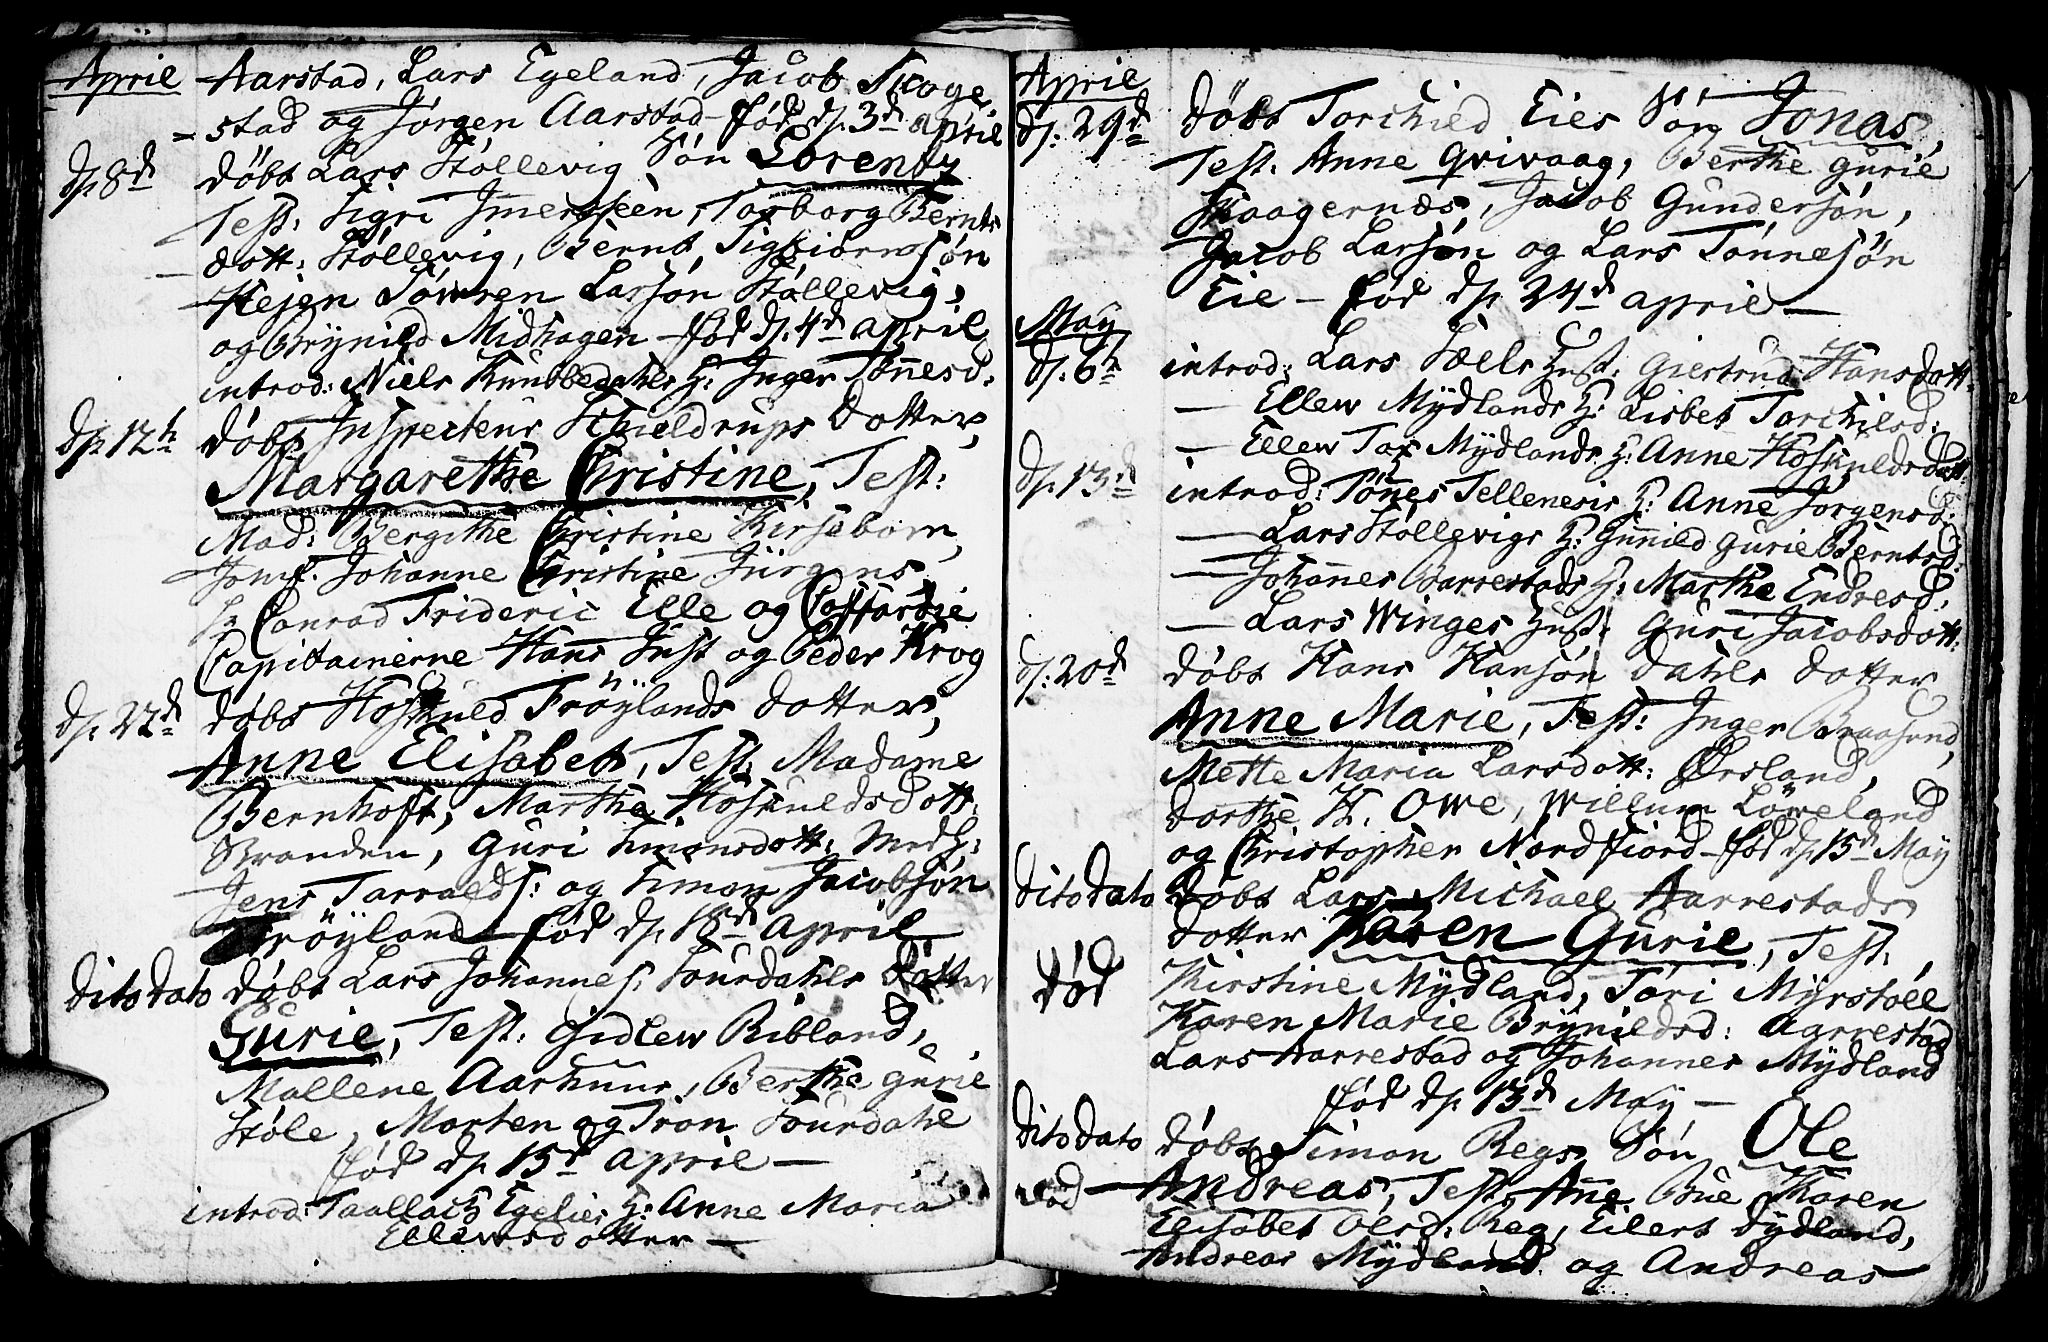 April Aarstad, Lars Egeland, Jacob Skoge
= stad og Jørgen Aarstad – fød dȝ 3d april
dȝ 8d døbt Lars Støllevig Søn Lorentz
Test: Sigri Jmerslëen, Torborg Bernts
dott: Støllevig, Bernt Sigbiørnsøn
Hejen Søwren Larsøn Støllevig,
og Brÿnild Midhagen – fød dȝ. 4d april
introd: Niels Kundsedahls H: Jnger Tønesd.
dȝ 12te døbt Jnspecteur Schieldrups Dotter,
Margarethe Christine, Test:
Mad: Bergithe Christine Kirsebom,
Jomf. Johanne Christine Jürgens,
Hr Conrad Frideric Elle og Coffardie
Capitainerne Hans Just og Peder Krog
dȝ 22d døbt Høskuld Frøÿlands dotter,
Anne Elisabet, Test: Madame
Bernhoft, Marthe Høskuldsdott:
Branden, Guri Simonsdott:
Jens Tarralds: og Simon Jacobsøn
Frøÿland – fød dȝ 18d april
dito dato døbt Lars Johannes: Suurdahls dotter
Gurie, Test: Sidlew Ribland,
Mallene Aarhuus, Berthe gurie
Støle, Morten og Tron Suurdahl
fød dȝ 15d april –
introd: Taallach Egelies H: Anne Maria
Ellewsdotter –
April
dȝ: 29d døbt Torchild Eies Søn Jonas,
Test: Anne Qvivaag, Berthe gurie
Skaagernæs, Jacob Gundersøn,
Jacob Larsøn og Lars Tønnesøn
Eie – fød dȝ 24d april –
May
dȝ: 6te introd: Lars Sæls Hust: Giertrud Hansdott:
– Ellew Mÿdlands H: Lisbet Torchilsd:
– Ellew Tox Mÿdlands H: Anne Høskuldsdott:
dȝ 13d introd: Tønes Tellenesis H: Anne Jørgensd:
– Lars Støllevigs H: Gunnild gurie Berntsd:
– Johannes Barrestads H: Marthe Endresd:
– Lars Winges Hust: Guri Jacobsdott:
dȝ: 20d døbt Hans Hansøn dahls dotter
Anne Marie, Test: Jnger Braasund,
Mette Maria Larsdott: Ørsland,
dorthe H. Owe, Willum Løveland
og Christopher Nordfiord – fød dȝ 15d May
dito dato døbt Lars Michael Aarrestads
dotter Karen Gurie, Test:
død Kirstine Mÿdland, Tøri Mÿrstøll
Karen Marie Brÿnildsd: Aarrestad
Lars Aarrestad og Johannes Mÿdland
fød dȝ 13d May –
dito dato døbt Simon Regs Søn Ole
død – Andreas, Test: Anne Bue Karen
Elisabet Olsd: Reg, Eilert Sÿdland,
Andreas Mÿdland og Andreas